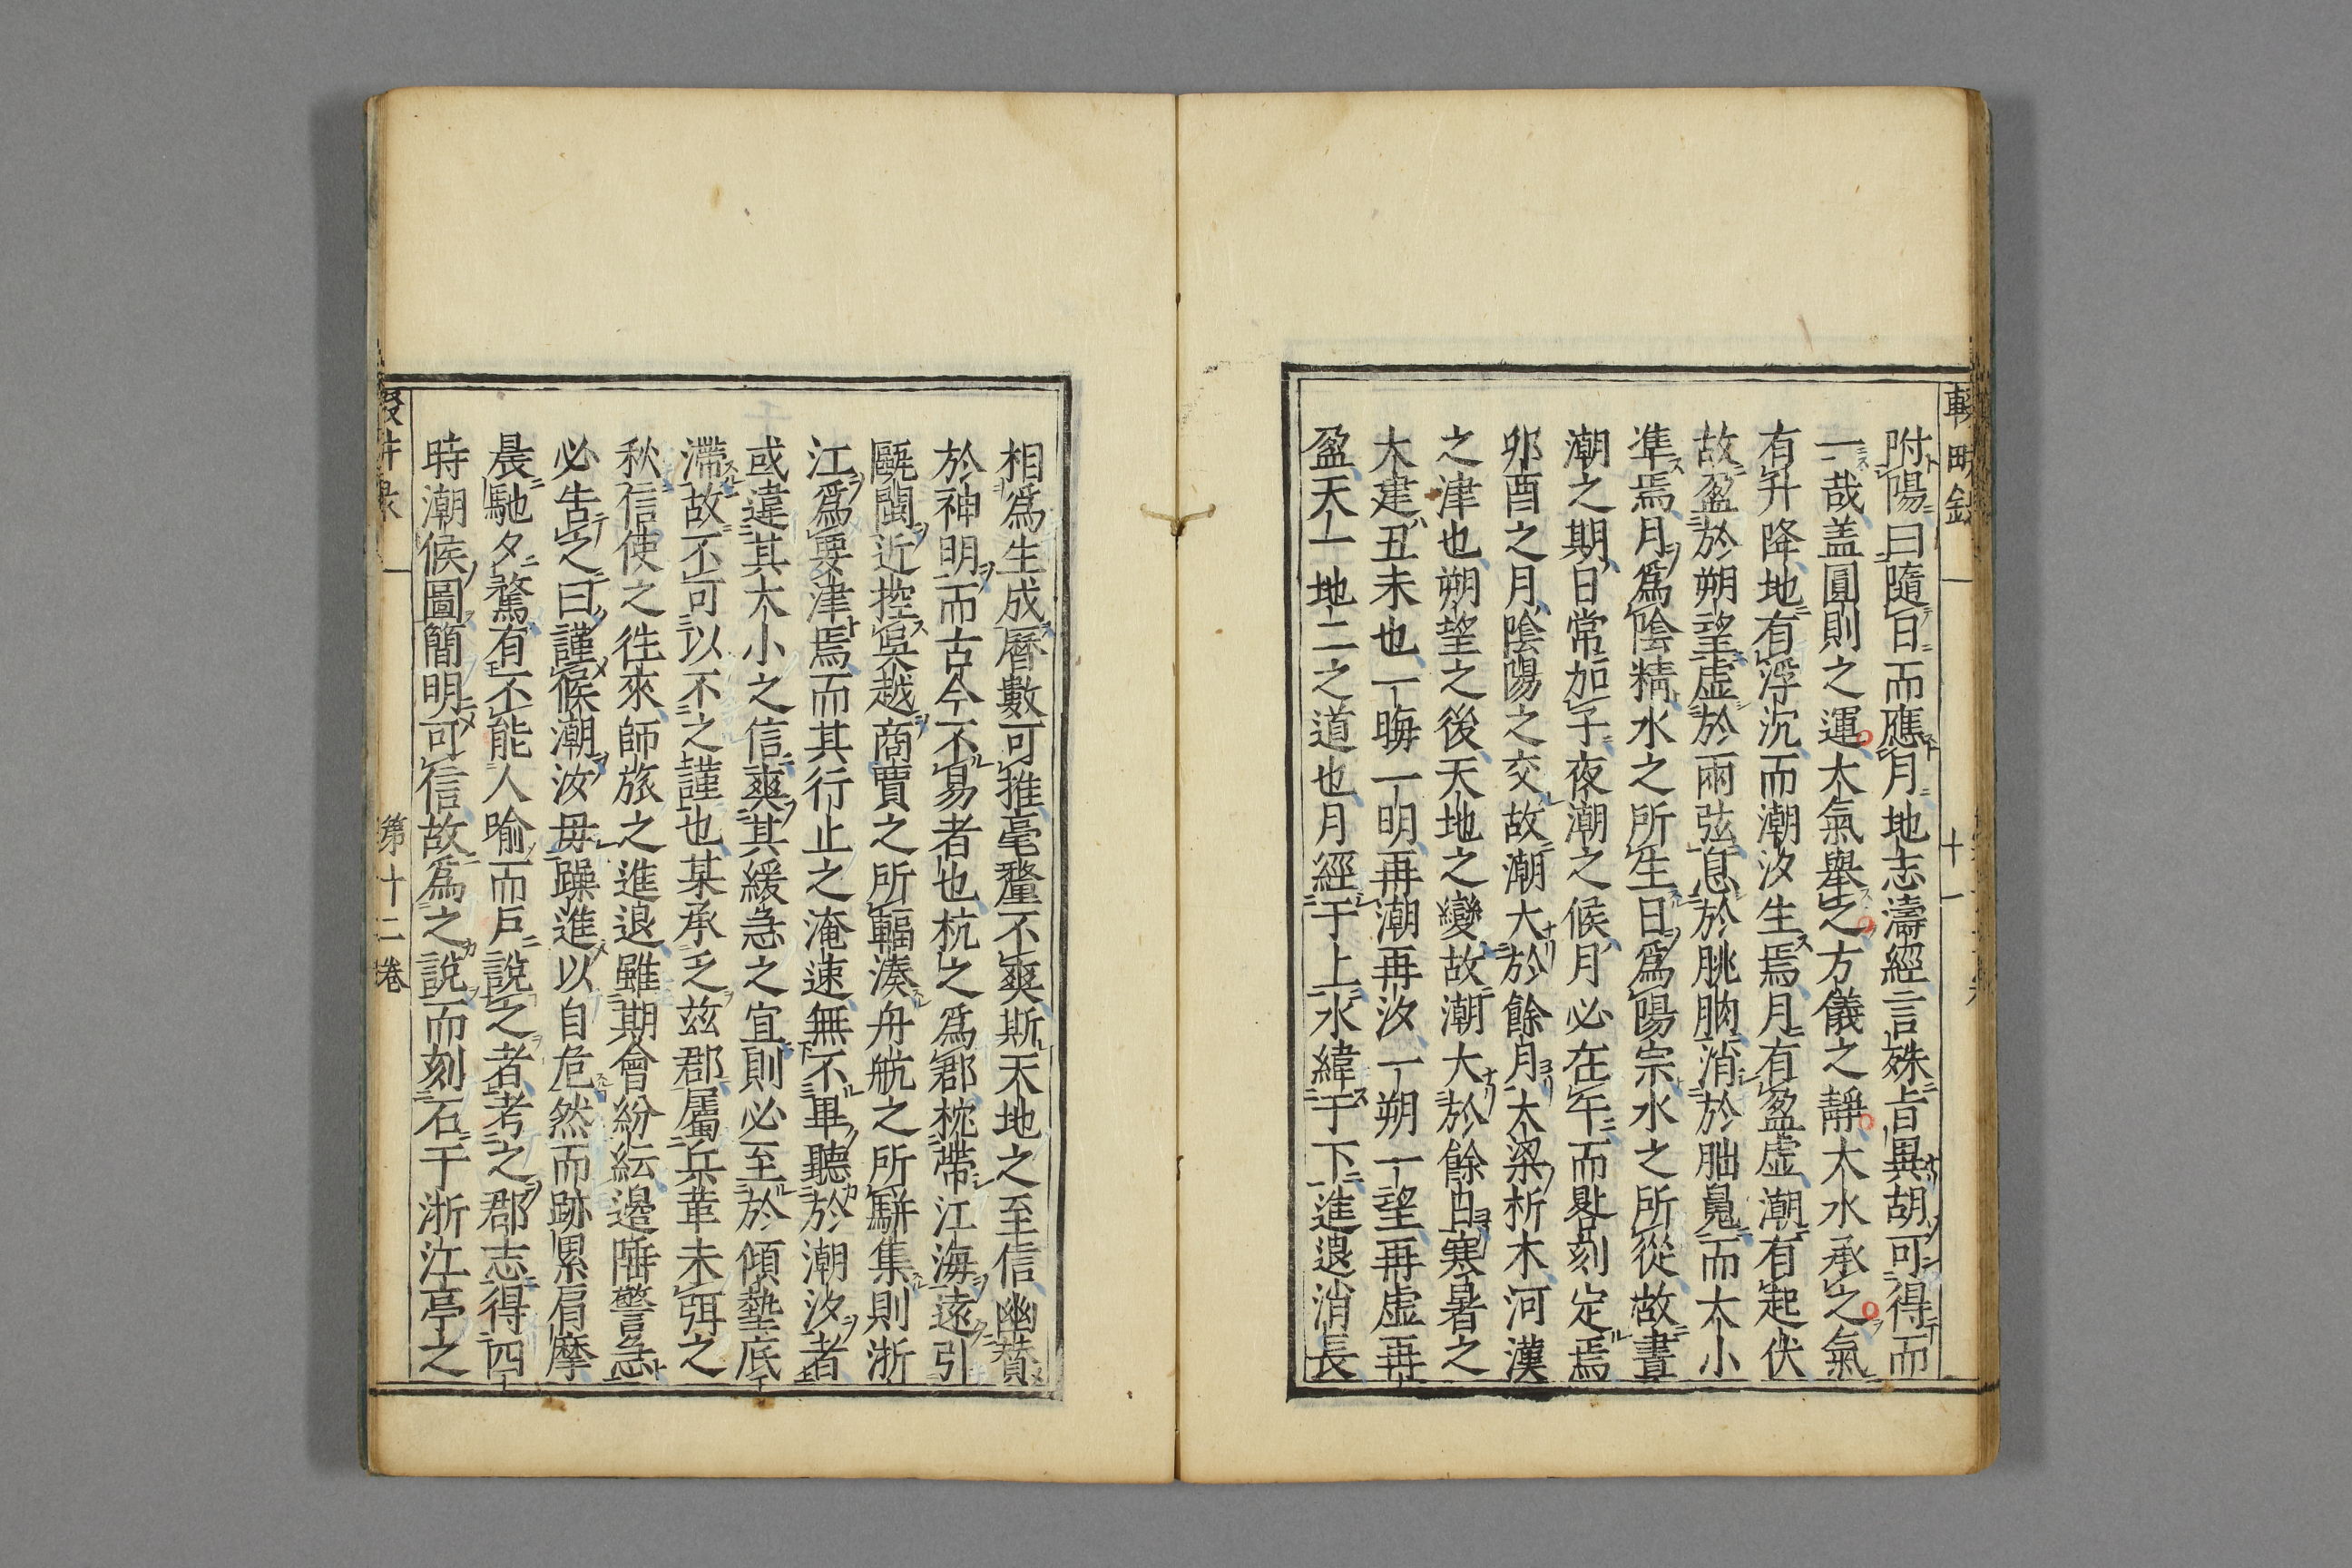 輟畊錄
十一
附陽曰隨日而應月地志濤經言殊旨異胡可得而
一哉盖圓則之運大氣舉之方儀之靜大水承之氣
有升降地有浮沉而潮汐生焉月有盈虛潮有起伏
故盈於朔望虛於兩弦息於朓朒消於朏魄而大小
準焉月為陰精水之所生日為陽宗水之所從故晝
潮之期日常加子夜潮之候月必在午而晷刻定焉
卯酉之月陰陽之交故潮大於餘月大梁析木河漢
之津也朔望之後天地之變故潮大於餘日寒暑之
大建丑未也一晦一明再潮再汐一朔一望再虛再
盈天一地二之道也月經于上水緯于下進退消長
相為生成曆數可推毫釐不爽斯天地之至信幽贊
於神明而古今不易者也杭之為郡枕帶江海遠引
甌閩近控吳越商賈之所輻湊舟航之所駢集則浙
江為要津焉而其行止之淹速無不畢聽於潮汐者
或違其大小之信爽其緩急之宜則必至於傾墊底
滯故不可以不之謹也某承乏玆郡屬兵革未弭之
秋信使之徃來師旅之進退雖期會紛紜邊陲警急
必告之曰謹候潮汝毋躁進以自危然而跡累肩摩
晨馳夕騖有不能人喻而戶說之者考之郡志得四
時潮候圖簡明可信故為之說而刻石于浙江亭之
第十二巻